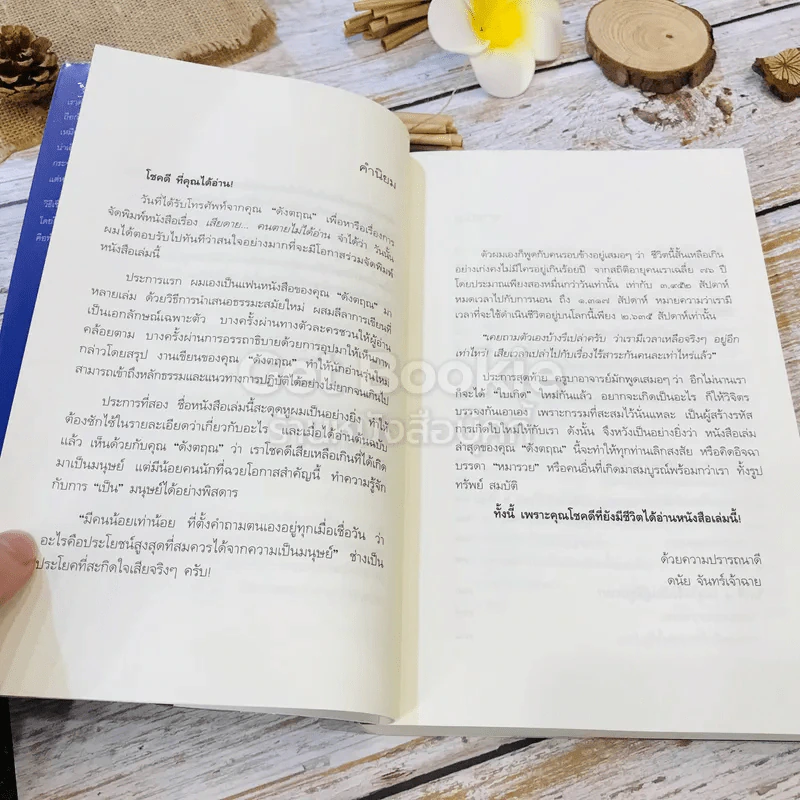 คำนิยม
โชคดี ที่คุณได้อ่าน!
วันที่ได้รับโทรศัพท์จากคุณ “ดังตฤณ” เพื่อหารือเรื่องการ
จัดพิมพ์หนังสือเรื่อง เสียดาย... คนตายไม่ได้อ่าน จำได้ว่า วันนั้น
ผมได้ตอบรับไปทันทีว่าสนใจอย่างมากที่จะมีโอกาสร่วมจัดพิมพ์
หนังสือเล่มนี้
ประการแรก ผมเองเป็นแฟนหนังสือของคุณ “ดังตฤณ” มา
หลายเล่ม ด้วยวิธีการนำเสนอธรรมะสมัยใหม่ ผสมลีลาการเขียนที่
เป็นเอกลักษณ์เฉพาะตัว บางครั้งผ่านทางตัวละครชวนให้ผู้อ่าน
คล้อยตาม บางครั้งผ่านการอรรถาธิบายด้วยการอุปมาให้เห็นภาพ
กล่าวโดยสรุป งานเขียนของคุณ “ดังตฤณ” ทำให้นักอ่านรุ่นใหม่
สามารถเข้าถึงหลักธรรมและแนวทางการปฏิบัติได้อย่างไม่ยากจนเกินไป
ประการที่สอง ชื่อหนังสือเล่มนี้สะดุดหูผมเป็นอย่างยิ่ง ทำให้
ต้องซักไซ้ในรายละเอียดว่าเกี่ยวกับอะไร และเมื่อได้อ่านต้นฉบับ
แล้ว เห็นด้วยกับคุณ “ดังตฤณ” ว่า เราโชคดีเสียเหลือเกินที่ได้เกิด
มาเป็นมนุษย์ แต่มีน้อยคนนักที่ฉวยโอกาสสำคัญนี้ ทำความรู้จัก
กับการ “เป็น” มนุษย์ได้อย่างพิสดาร
“มีคนน้อยเท่าน้อย ที่ตั้งคำถามตนเองอยู่ทุกเมื่อเชื่อวัน ว่า
อะไรคือประโยชน์สูงสุดที่สมควรได้จากความเป็นมนุษย์” ช่างเป็น
ประโยคที่สะกิดใจเสียจริงๆ ครับ!
ตัวผมเองก็พูดกับคนรอบข้างอยู่เสมอๆ ว่า ชีวิตนี้สั้นเหลือเกิน
อย่างเก่งคงไม่มีใครอยู่เกินร้อยปี จากสถิติอายุคนเราเฉลี่ย ๗๖ ปี
โดยประมาณเพียงสองหมื่นกว่าวันเท่านั้น เท่ากับ ๓,๙๕๒ สัปดาห์
หมดเวลาไปกับการนอน ถึง ๑,๓๑๗ สัปดาห์ หมายความว่าเรามี
เวลาที่จะใช้ดำเนินชีวิตอยู่บนโลกนี้เพียง ๒,๖๓๕ สัปดาห์เท่านั้น
“เคยถามตัวเองบ้างรึเปล่าครับ ว่าเรามีเวลาเหลือจริงๆ อยู่อีก
เท่าไหร่! เสียเวลาเปล่าไปกับเรื่องไร้สาระกันคนละเท่าไหร่แล้ว”
ประการสุดท้าย ครูบาอาจารย์มักพูดเสมอๆ ว่า อีกไม่นานเรา
ก็จะได้ “ไปเกิด” ใหม่กันแล้ว อยากจะเกิดเป็นอะไร ก็ให้วิจิตร
บรรจงกันเอาเอง เพราะกรรมที่สะสมไว้นั่นแหละ เป็นผู้สร้างรหัส
การเกิดใหม่ให้กับเรา ดังนั้น จึงหวังเป็นอย่างยิ่งว่า หนังสือเล่ม
ล่าสุดของคุณ “ดังตฤณ” นี้จะทำให้ทุกท่านเลิกสงสัย หรือคิดอิจฉา
บรรดา “หมารวย” หรือคนอื่นที่เกิดมาสมบูรณ์พร้อมกว่าเรา ทั้งรูป
ทรัพย์ สมบัติ
ทั้งนี้ เพราะคุณโชคดีที่ยังมีชีวิตได้อ่านหนังสือเล่มนี้!
ด้วยความปรารถนาดี
ดนัย จันทร์เจ้าฉาย
Get Bookie
ร้านหนังสือออนไลน์